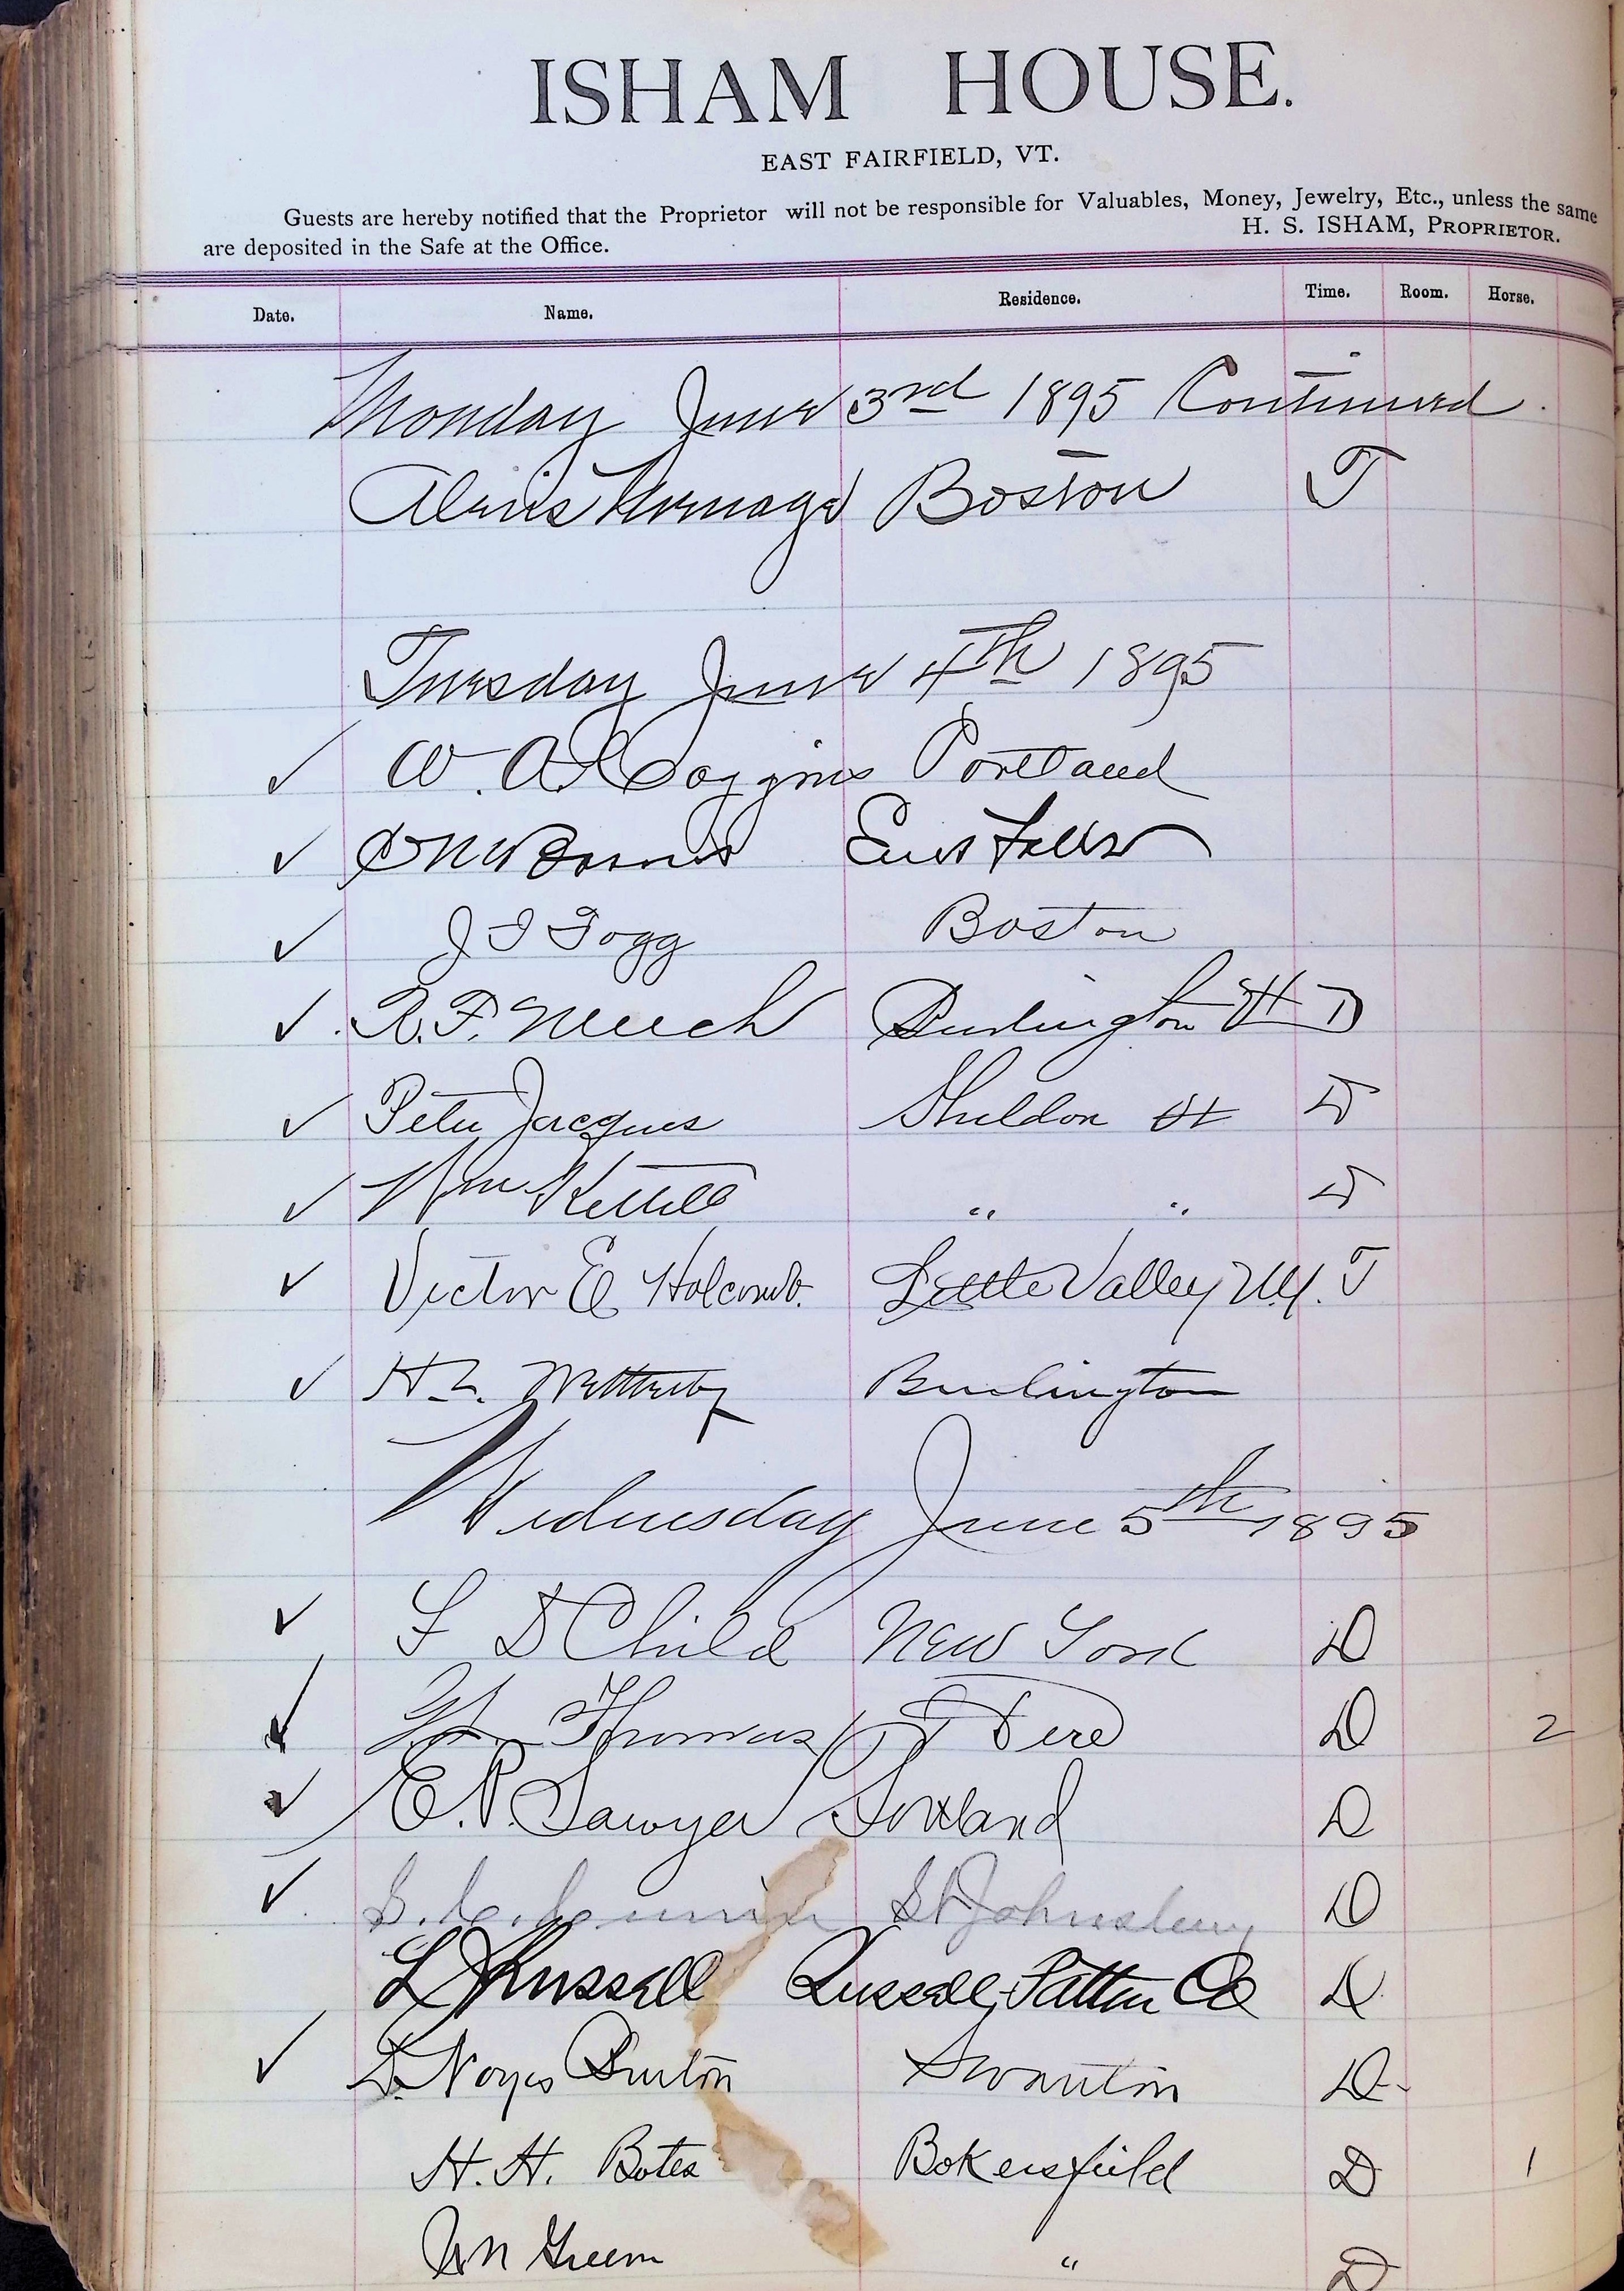 ISHAM HOUSE.
EAST FAIRFIELD, VT.
Guests are hereby notified that the Proprietor will not be responsible for Valuables, Money, Jewelry, Etc., unless the same
are deposited in the Safe at the Office. H. S. ISHAM, PROPRIETOR.
Date. Name. Residence. Time. Room. Horse.
Monday June 3rd 1895 Continued.
Boston T
Tuesday June 4th 1895
✓ W. A. Coggins Portland
✓
✓ J I Fogg Boston
✓ R. F. Burlington Vt D
✓ Peter Jacques Sheldon Vt D
✓ Wm Kettell " " D
✓ Victor E Holcomb. Little Valley N.Y. T
✓ H L. Wetherby Burlington
Wednesday June 5th 1895
✓ F D Child New York D
✓ Thomas D 2
✓ E. P. Sawyer Portland D
✓ St Johnsbury D
L J Russell Russell, Patten Co D
✓ D. Noyes Burton Swanton D
H. H. Bates Bokersfield D 1
Green " D